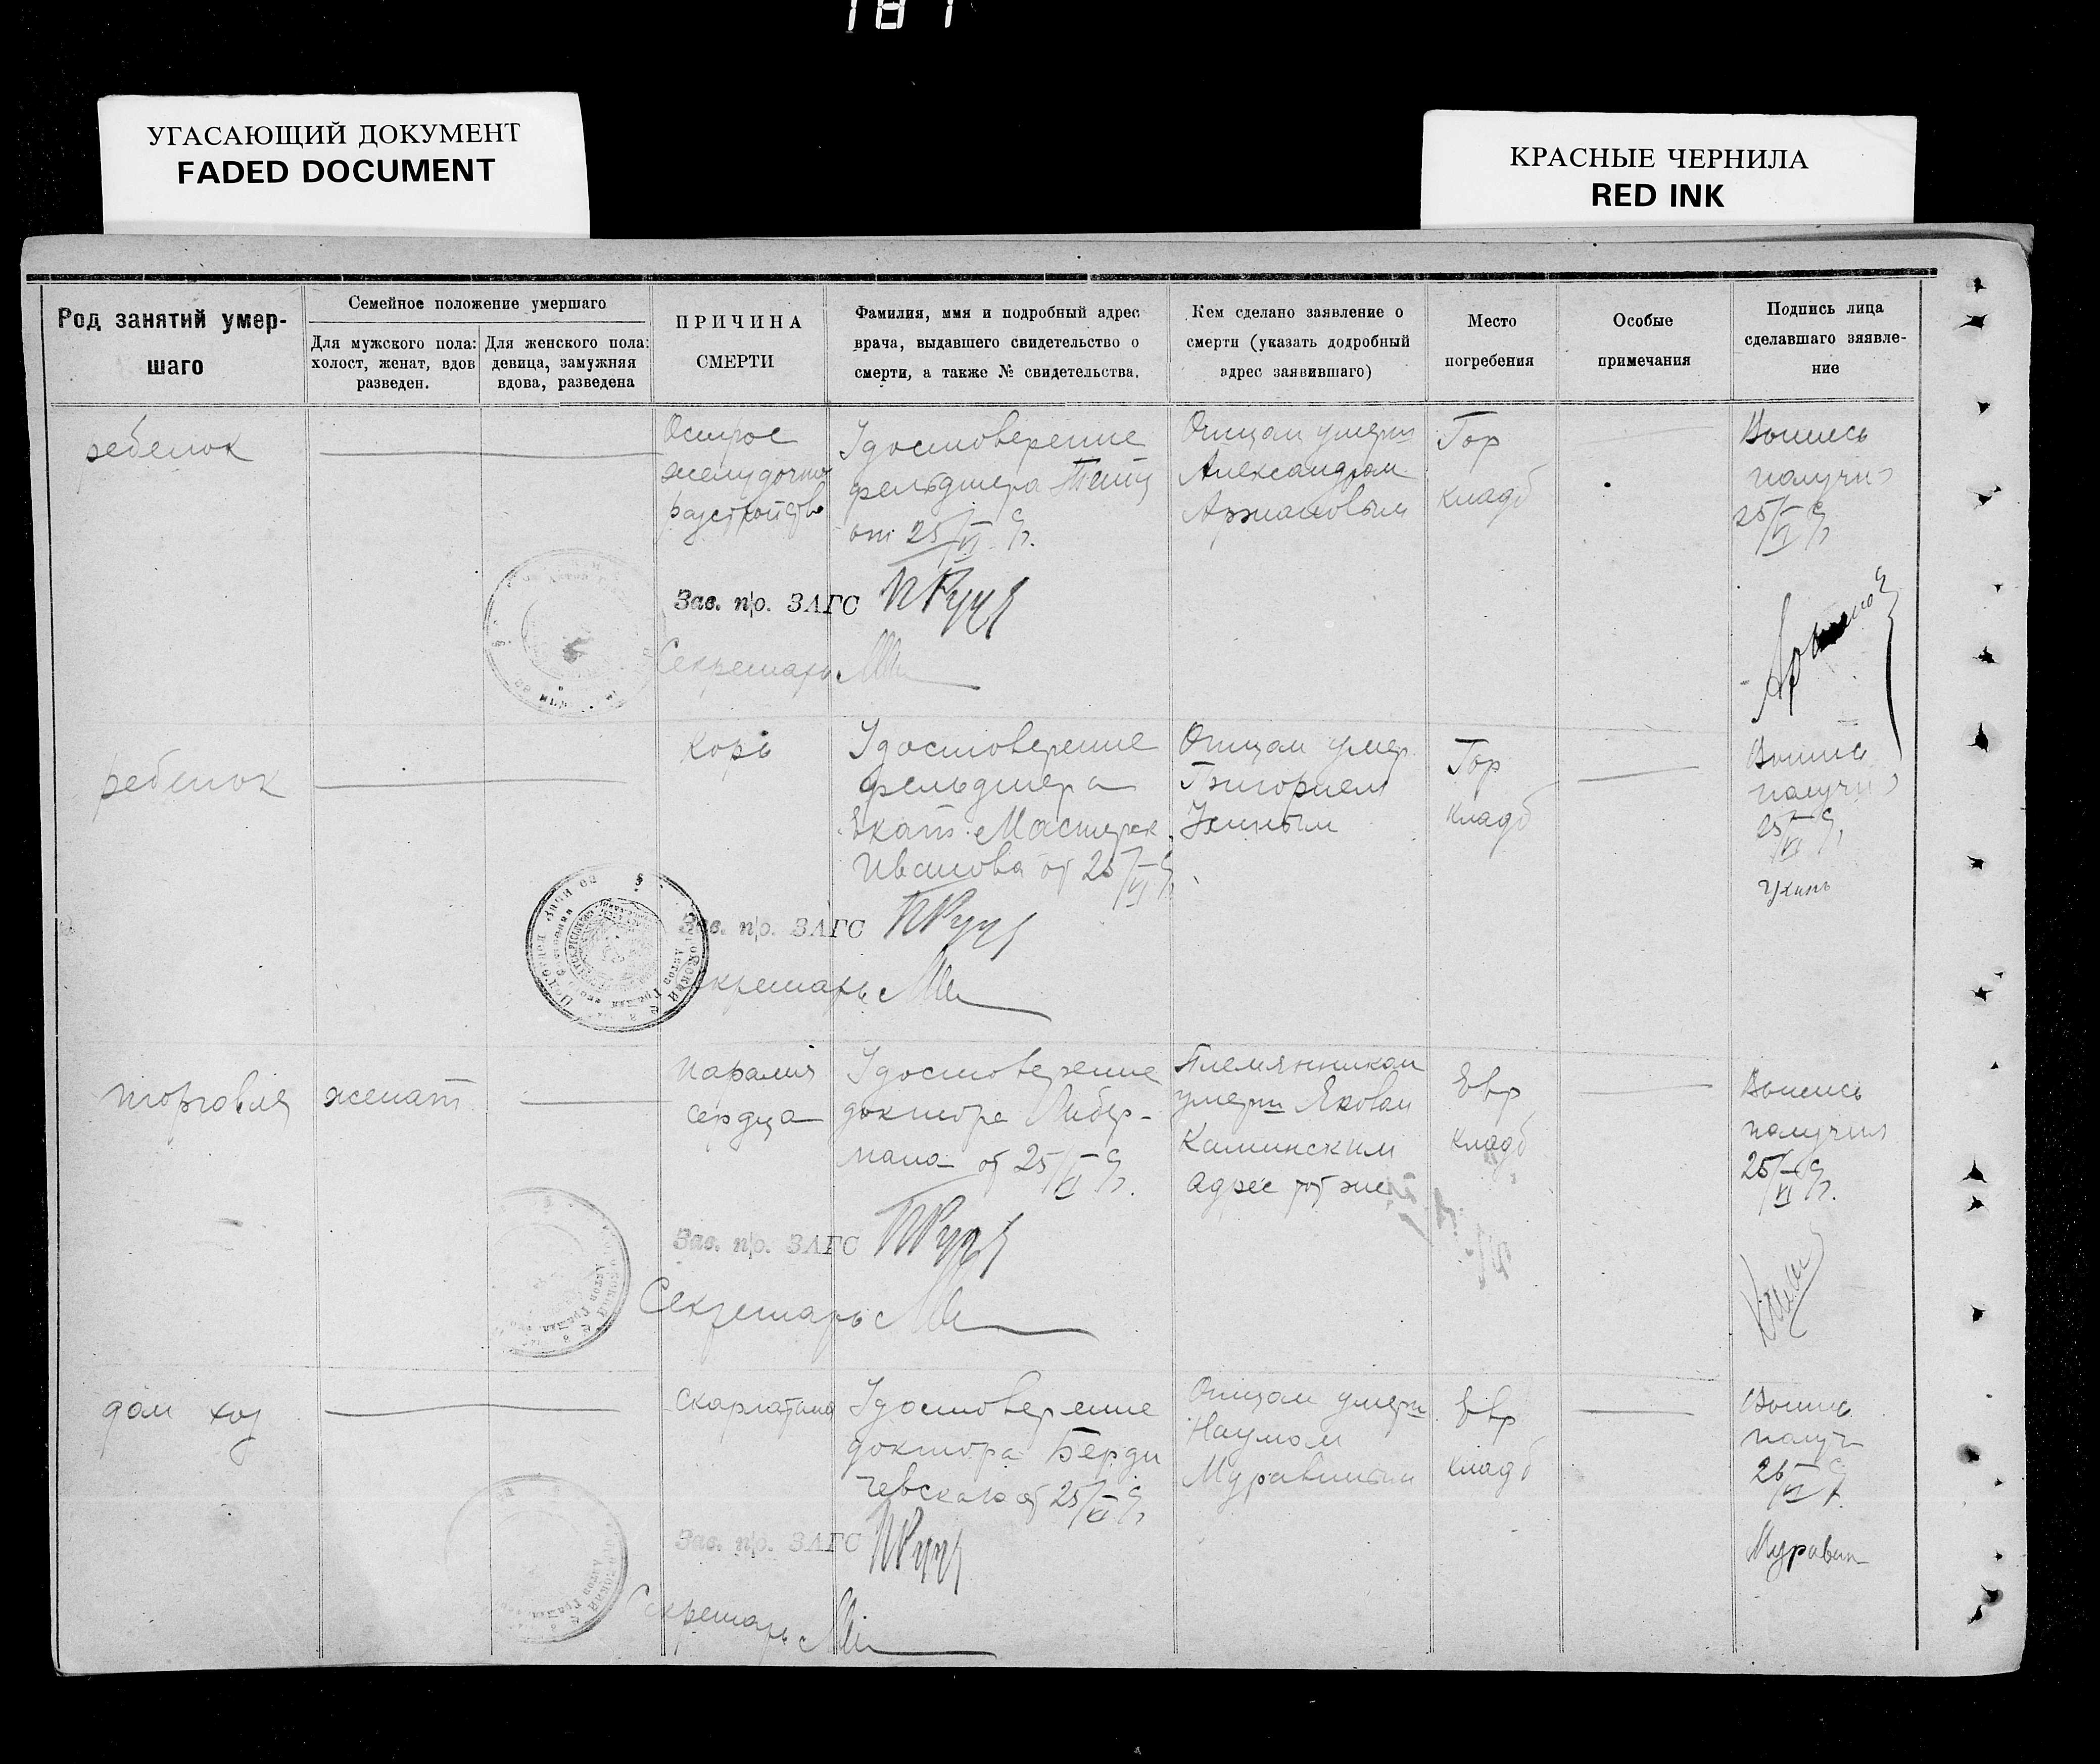 181
УГАСАЮЩИЙ ДОКУМЕНТ
FADED DOCUMENT
КРАСНЫЕ ЧЕРНИЛА
RED INK
Род занятий умер-
шаго
Семейное положение умершаго
Для мужского пола:
холост, женат, вдов
разведен.
Для женского пола:
девица, замужняя
вдова, разведена
ПРИЧИНА
СМЕРТИ
Фамилия, ммя и подробный адрес
врача, выдавшего свидетельство о
смерти, а также № свидетельства.
Кем сделано заявление о
смерти (указать додробный
адрес заявившаго)
Место
погребения
Особые
примечания
Подпись лица
сделавшаго зяявле-
ние
ребенок
Острое
желудочно
разстройство
Удостоверение
фельдшера
от 25/VI
Отцом умерш
Александром
Аржановым
Гор
кладб
Выпись
получил
25/VI
Зав. п/о. ЗАГС
Секретарь
ребенок
Корь
Удостоверение
фельдшера
Екат. Мастерск
Иванова от 25/VI
Отцом умер
Григорием
Ухиным
Гор
кладб
Выпись
получил
25/VI
Ухинъ
Зав. п/о. ЗАГС
Секретарь
торговля
женат
паралич
сердца
Удостоверение
доктора Либер-
мана от 25/VI
Племянником
умерш Яковом
Каминским
адрес тот же
Евр
кладб
Выпись
получил
25/VI
Зав. п/о. ЗАГС
Секретарь
дом хоз
скарлатина
Удостоверение
доктора Берди
чевскаго от 25/VI
Отцом умерш
Наумом
Муравиным
Евр
кладб
Выпись
получ
26/VI
Муравин
Зав. п/о. ЗАГС
Секретарь